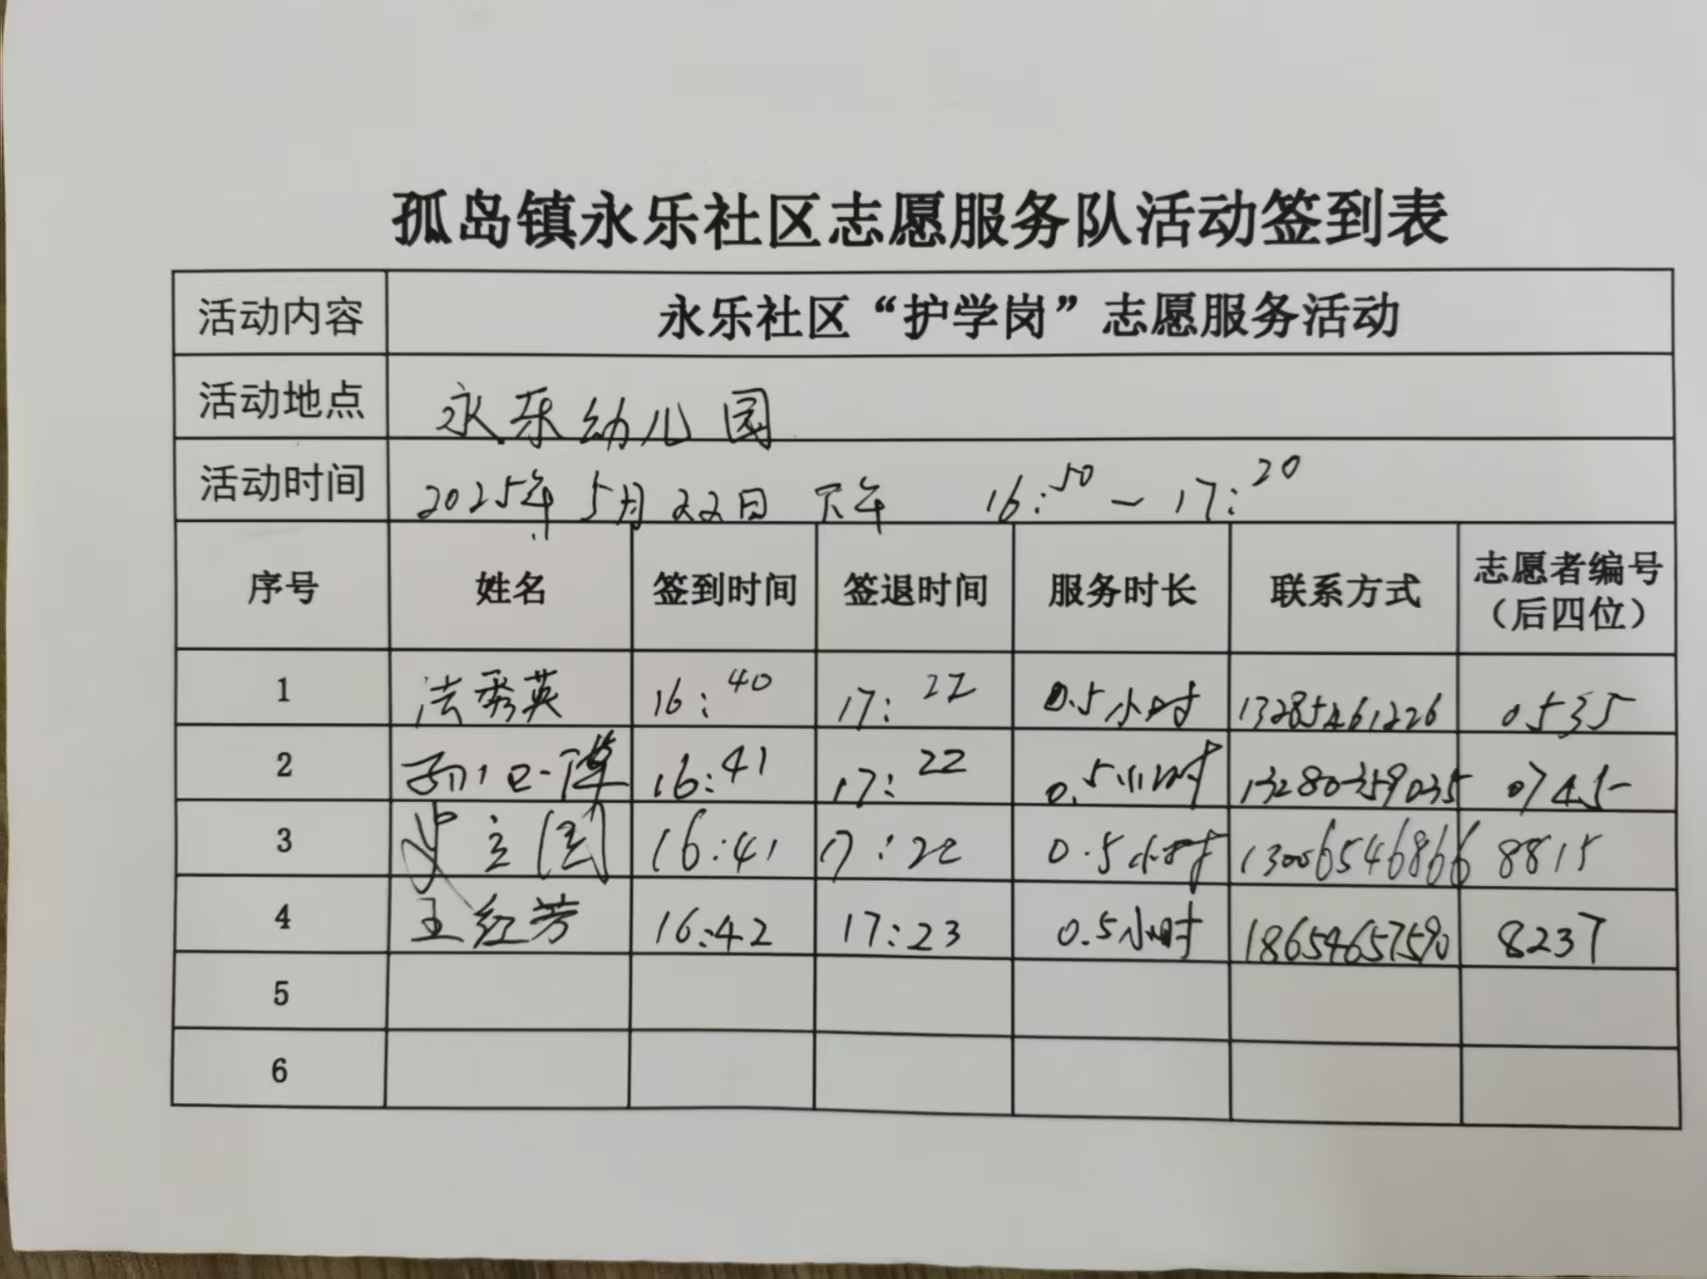 孤岛镇永乐社区志愿服务队活动签到表
活动内容 永乐社区“护学岗”志愿服务活动
活动地点 永乐幼儿园
活动时间 2025年5月22日 下午 16:50—17:20
序号 姓名 签到时间 签退时间 服务时长 联系方式 志愿者编号（后四位）
1 法秀英 16:40 17:22 0.5小时 13285461226 0535
2 16:41 17:22 0.5小时 13280359035 0745
3 16:41 17:22 0.5小时 13006546866 8815
4 王红芳 16:42 17:23 0.5小时 18654657590 8237
5
6